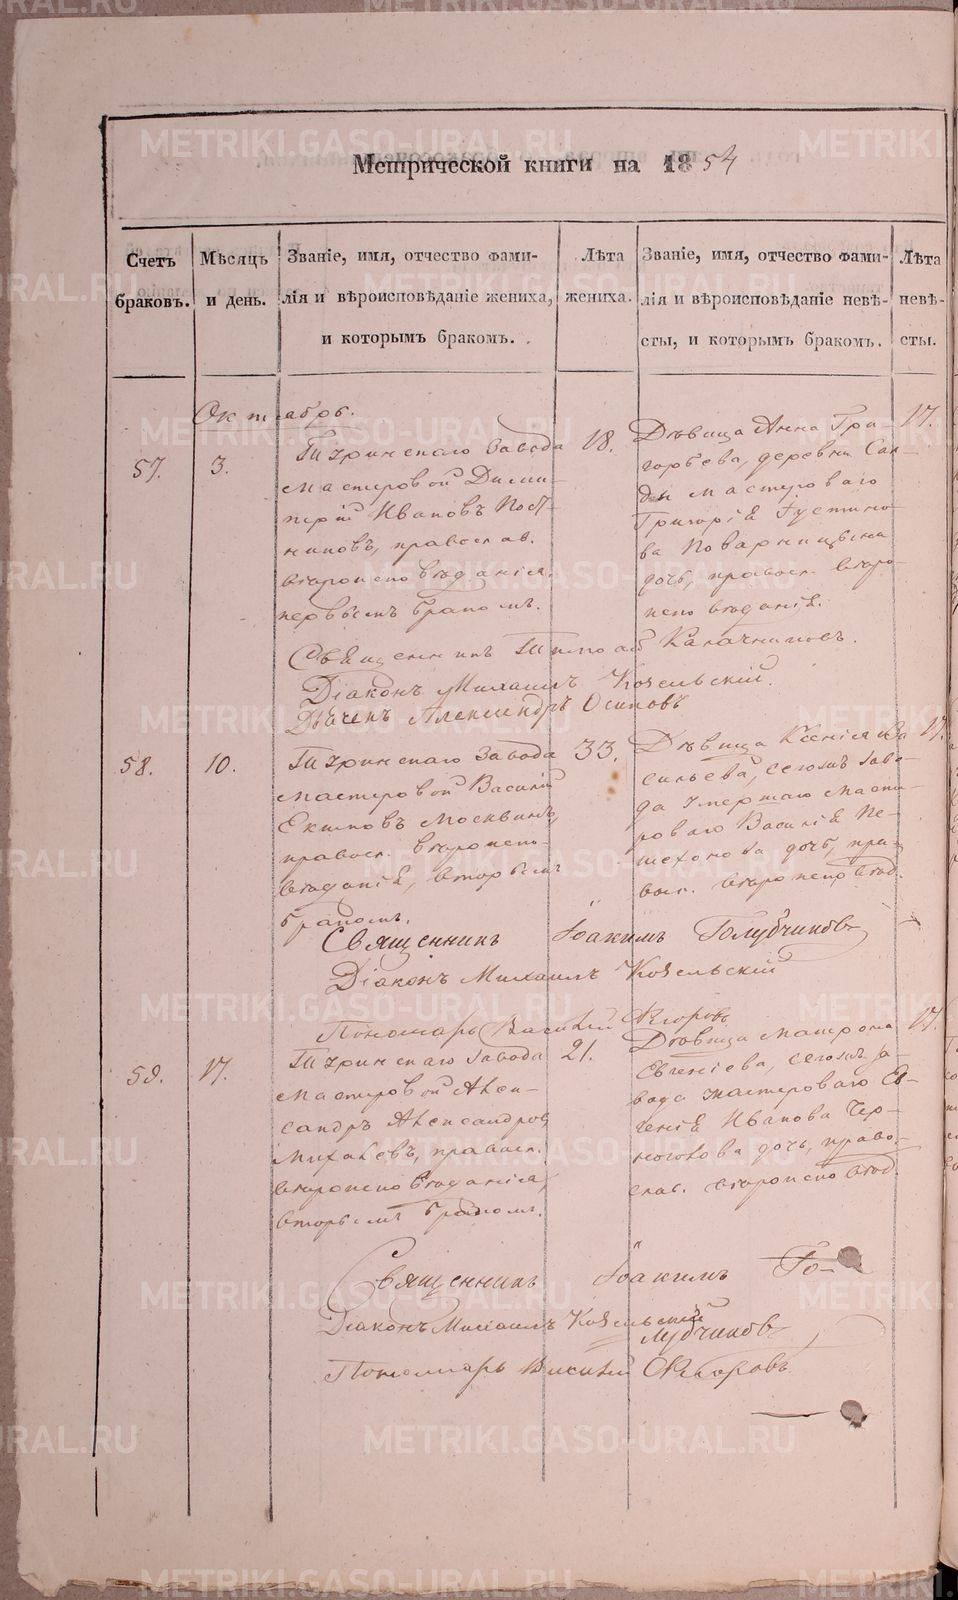 Метрической книги на 1854
Счетъ браковъ.
Мѣсяцъ и день.
Званіе, имя, отчество фами-
лія и вѣроисповѣданіе жениха,
и которымъ бракомъ.
Лѣта жениха.
Званіе, имя, отчество фами-
лія и вѣроисповѣданіе невѣ-
сты, и которымъ бракомъ.
Лѣта невѣ-
сты.
Октябрь.
57.
3.
Туринскаго Завода
мастеровой Дими-
трій Ивановъ Пост-
никовъ, православ.
вѣроисповѣданія,
первымъ бракомъ.
18.
Дѣвица Анна Гри-
горьева, деревни Сал-
ды мастероваго
Григорія Устино-
ва Поварницына
дочь, правосл. вѣро-
исповѣданія.
17.
Священникъ Тимофей Калачниковъ.
Діаконъ Михаилъ Козельскій.
Дьячекъ Александръ Осиповъ
58.
10.
Туринскаго Завода
мастеровой Василій
Екимовъ Москвинъ,
правосл. вѣроиспо-
вѣданія, вторымъ
бракомъ.
33.
Дѣвица Ксенія Ва
сильева, сегожъ заво-
да умершаго масте-
роваго Василія Пе-
шехонова дочь, пра-
восл. вѣроисповѣд.
17.
Священникъ Іоакимъ Голубчиковъ
Діаконъ Михаилъ Козельскій
Пономарь Василій Ѳедоровъ
59.
17.
Туринскаго Завода
мастеровой Алек-
сандръ Александровъ
Михалевъ, правосл.
вѣроисповѣданія,
вторымъ бракомъ.
21.
Дѣвица Матрона
Евгеніева, сегожъ за-
вода мастероваго Ев-
генія Иванова Чер-
ноголова дочь, право-
слав. вѣроисповѣд.
17.
Священникъ Іоакимъ Го-
лубчиковъ
Діаконъ Михаилъ Козельскій
Пономарь Василій Ѳедоровъ
METRIKI.GASO-URAL.RU